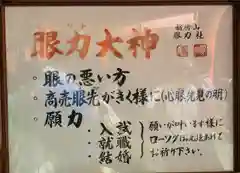 眼力大神
眼力社
・眼の悪い方
・商売眼先がきく様に(心眼先見の明)
・願力
入試
就職
結婚
願いが叶います様に
ローソクに
お祈り下さい。